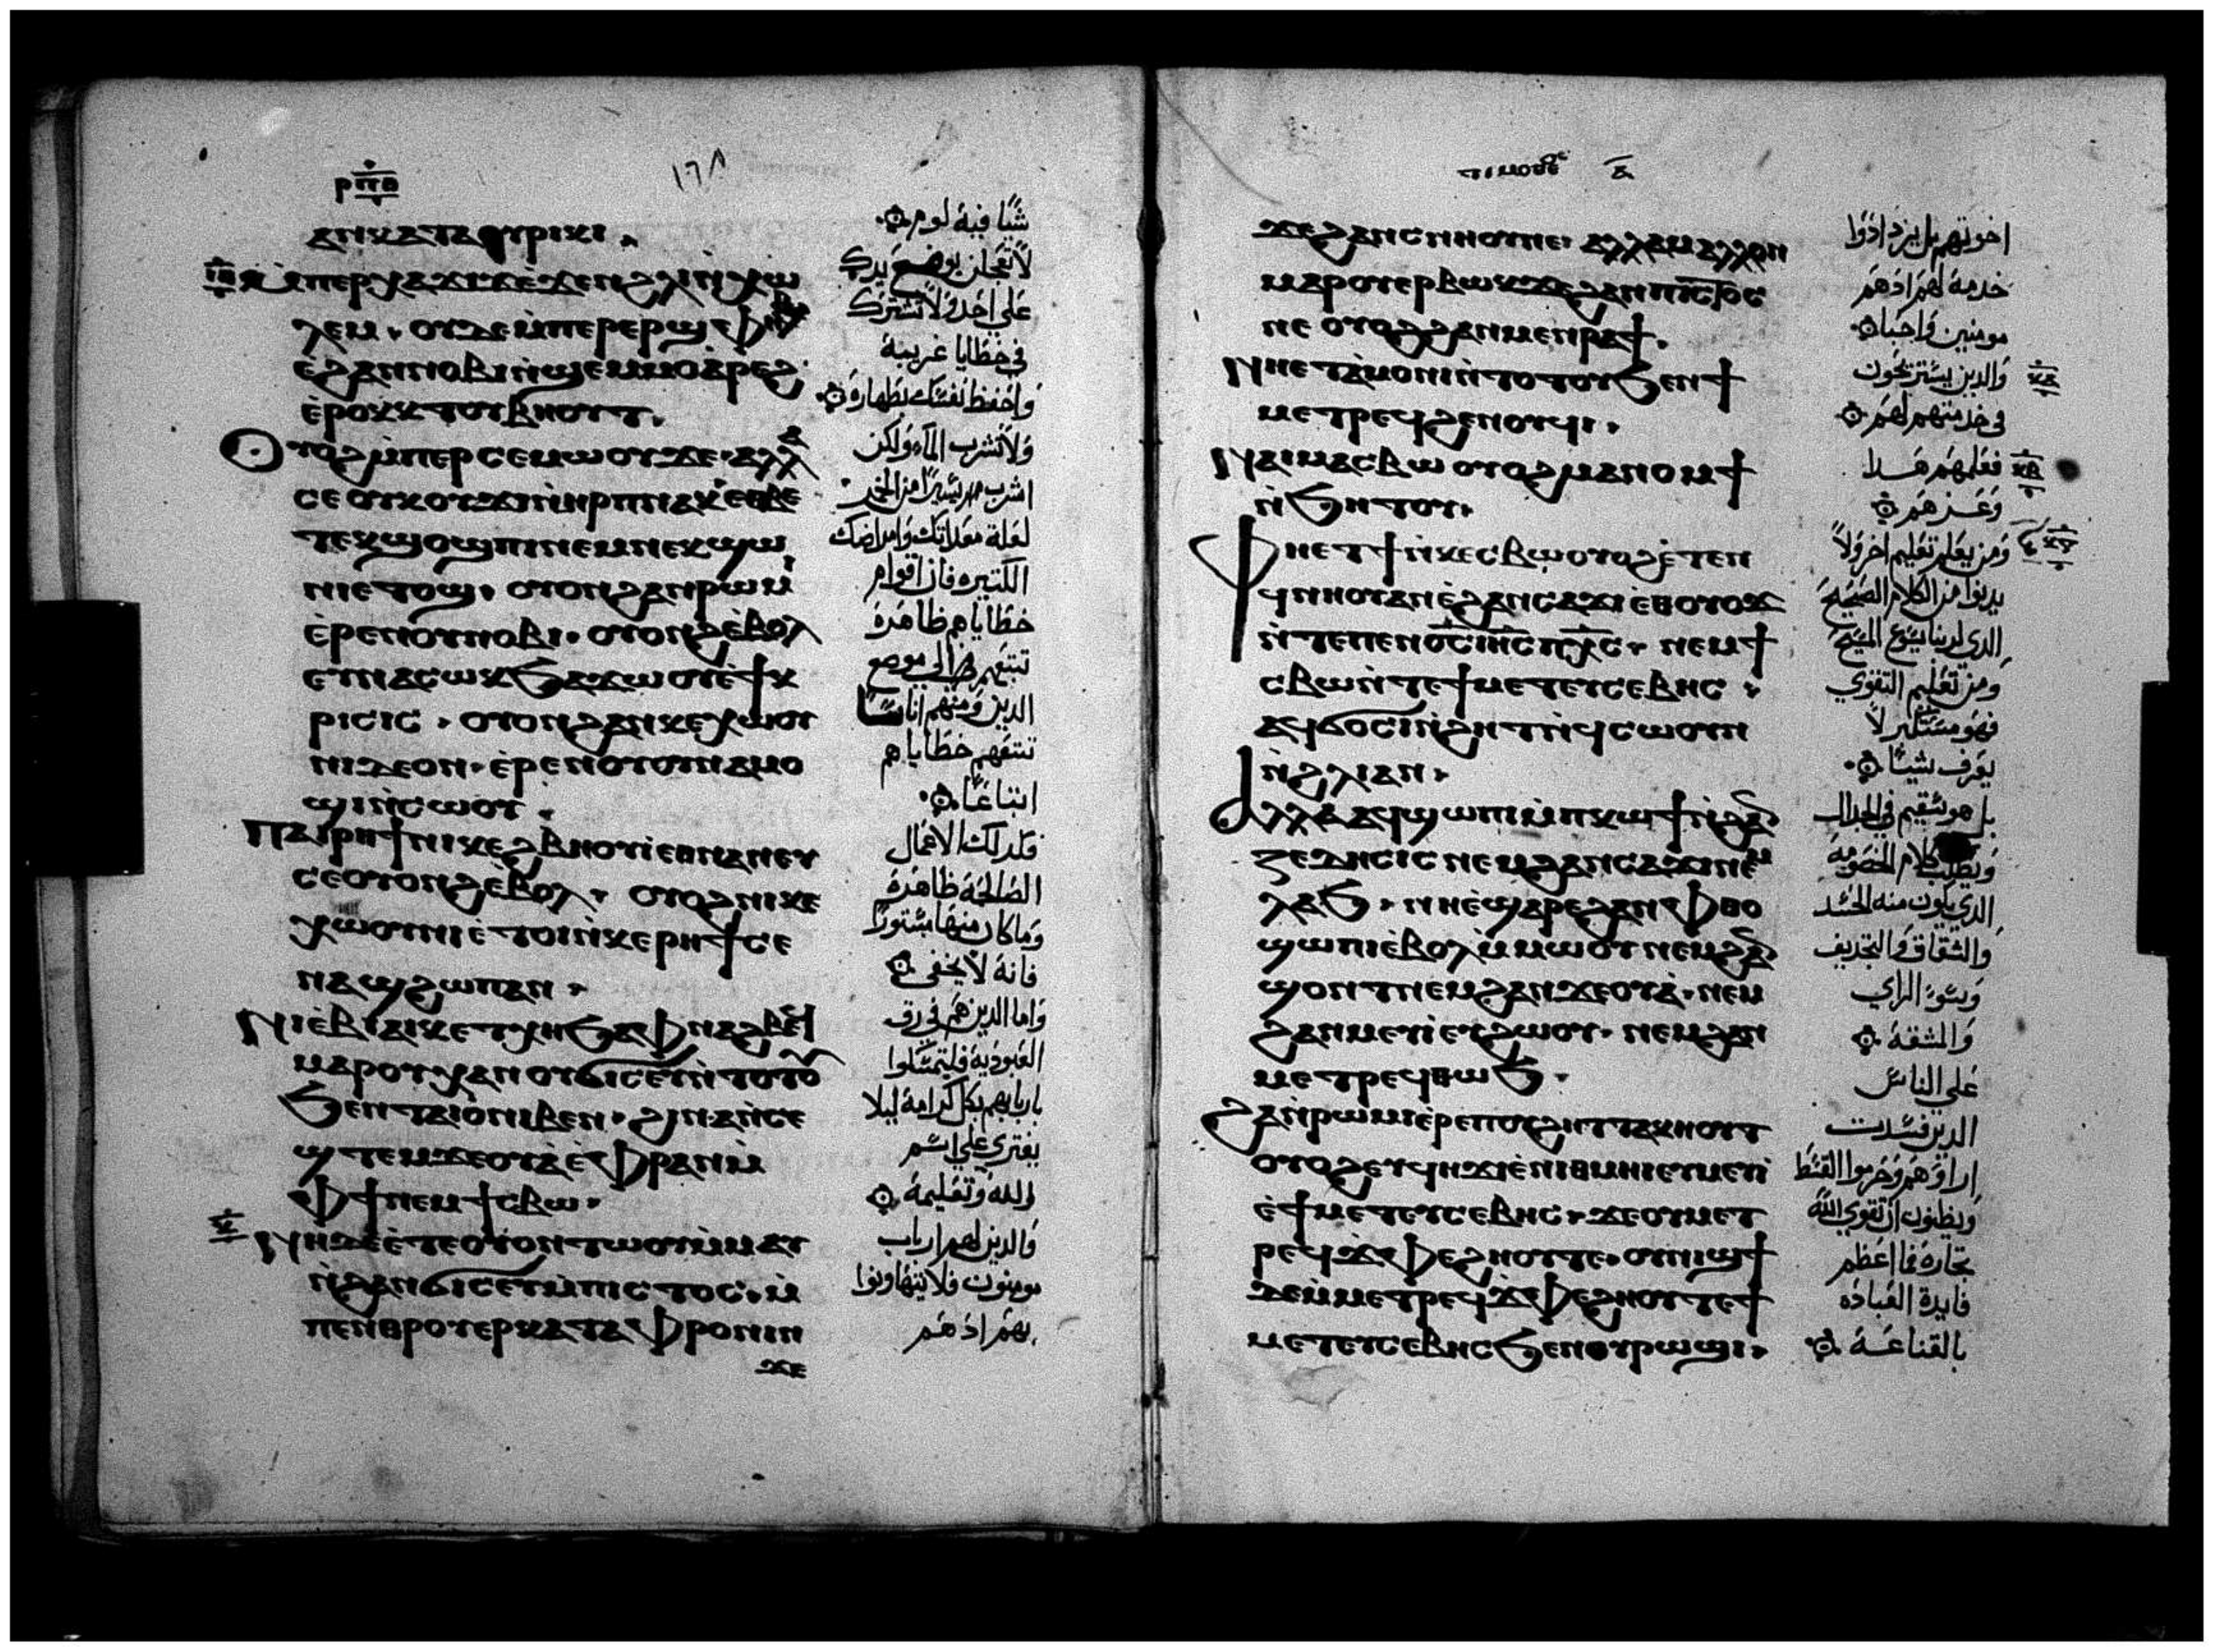 ⲣⲡⲑ
١٦٨
ⲁⲛⲕⲁⲧⲁⲫⲩⲣⲓⲕⲓ
ⲙⲡⲉⲣⲭⲁϫⲓϫ ⲉϫⲉⲛϩⲗⲓⲛⲭⲱ
ⲗⲉⲙ ⲟⲩⲇⲉ ⲙⲡⲉⲣⲉⲣϣⲫⲏⲣ
ⲉϩⲁⲛⲛⲟⲃⲓ ⲛϣⲉⲙⲙⲟ ⲁⲣⲉϩ
ⲉⲣⲟⲕ ⲕⲧⲟⲩⲃⲏⲟⲩⲧ
ⲟⲩⲟϩ ⲙⲡⲉⲣⲥⲉⲙⲱⲟⲩ ϫⲉ ⲁⲗⲗⲁ
ⲥⲉ ⲟⲩⲕⲟⲩϫⲓ ⲛⲏⲣⲡ ⲛⲁⲕ ⲉⲑⲃⲉ
ⲡⲉⲕϣⲟϣⲡⲓ ⲛⲉⲙ ⲛⲉⲕϣⲱ
ⲛⲓ ⲉⲧⲟϣ ⲟⲩⲟⲛ ϩⲁⲛⲣⲱⲙⲓ
ⲉⲣⲉ ⲛⲟⲩⲛⲟⲃⲓ ⲟⲩⲟⲛϩ ⲉⲃⲟⲗ
ⲉⲩⲛⲁⲥⲱⲕ ϧⲁϫⲱⲟⲩ ⲉϯⲕ
ⲣⲓⲥⲓⲥ ⲟⲩⲟⲛ ϩⲁⲛⲕⲉⲭⲱⲟⲩ
ⲛⲓ ⲇⲉ ⲟⲛ ⲉⲣⲉ ⲛⲟⲩⲟⲩⲛⲁⲙⲟ
ϣⲓ ⲛⲥⲱⲟⲩ
ⲡⲁⲓⲣⲏϯ ⲛⲓⲕⲉϩⲃⲏⲟⲩⲓ ⲉⲑⲛⲁⲛⲉⲩ
ⲥⲉⲟⲩⲟⲛϩ ⲉⲃⲟⲗ ⲟⲩⲟϩ ⲛⲓⲕⲉ
ⲭⲱⲟⲩⲛⲓ ⲉⲧⲟⲓ ⲛⲕⲉⲣⲏϯ ⲥⲉ
ⲛⲁϣϩⲱⲡ ⲁⲛ
ⲛⲓⲉⲃⲓⲁⲓⲕ ⲉⲧⲭⲏ ϧⲁ ⲫⲛⲁϩⲃⲉϥ
ⲙⲁⲣⲟⲩⲭⲁ ⲛⲟⲩϭⲓⲥⲉⲩ ⲛⲧⲟⲧⲟⲩ
ϧⲉⲛ ⲧⲁⲓⲟ ⲛⲓⲃⲉⲛ ϩⲓⲛⲁ ⲛⲥⲉ
ϣⲧⲉⲙϫⲉⲟⲩⲁ ⲉⲫⲣⲁⲛ ⲙ
ⲫϯ ⲛⲉⲙ ϯⲥⲃⲱ
ⲛⲏ ⲇⲉ ⲉⲧⲉ ⲟⲩⲟⲛⲧⲱⲟⲩ ⲙⲙⲁⲩ
ⲛϩⲁⲛϭⲓⲥⲉⲩ ⲙⲡⲓⲥⲧⲟⲥ ⲙ
ⲡⲉⲛⲑⲣⲟⲩⲉⲣⲕⲁⲧⲁⲫⲣⲟⲛⲓⲛ
ϫⲉ
شيًا فيه لوم
لا تعجلن بوضع يدك
علي احد ولا تشترك
في خطايا غريبة
واحفظ نفسك بطهارة
ولا تشرب الماء ولكن
اشرب يسيرًا من الخمر
لعلة معدتك وامراضك
الكتيره فان اقوام
خطاياهم ظاهرة
تتبعهم الي موضع
الدين ومنهم اناسًا
تتبعهم خطاياهم
اتباعًا
فكدلك الاعمال
الصالحة ظاهرة
وما كان منها مستورًا
فانه لا يخفي
واما الدين هم في رق
العبودية فليتمسكوا
باربابهم بكل كرامة ليلا
يفتري علي اسم
الله وتعليمه
والدين لهم ارباب
مومنون فلا يتهاونوا
بهم ادهم
ⲧⲓⲙⲟⲑⲉ ⲁ
ϫⲉ ϩⲁⲛⲥⲛⲏⲟⲩ ⲛⲉ ⲁⲗⲗⲁ ⲙⲁⲗⲗⲟⲛ
ⲙⲁⲣⲟⲩⲉⲣⲃⲱⲕ ϫⲉ ϩⲁⲛⲡⲓⲥⲧⲟⲥ
ⲛⲉ ⲟⲩⲟϩ ϩⲁⲛⲙⲉⲛⲣⲁϯ
ⲛⲏ ⲉⲧⲁⲙⲟⲛⲓ ⲛⲧⲟⲧⲟⲩ ϧⲉⲛ ϯ
ⲙⲉⲧⲣⲉϥϩⲉⲛⲟⲩϥⲓ
ⲛⲁⲓ ⲙⲁⲥⲃⲱ ⲟⲩⲟϩ ⲙⲁⲛⲟⲙϯ
ⲛϧⲏⲧⲟⲩ
ⲫⲏ ⲉⲧϯ ⲛⲕⲉⲥⲃⲱ ⲟⲩⲟϩ ⲉⲧⲉⲛ
ϥⲛⲏⲟⲩ ⲁⲛ ⲉϩⲁⲛⲥⲁϫⲓ ⲉⲑⲟⲩⲟϫ
ⲛⲧⲉ ⲡⲉⲛⲟⲥ ⲓⲏⲥ ⲡⲭⲥ ⲛⲉⲙ ϯ
ⲥⲃⲱ ⲛⲧⲉ ϯⲙⲉⲧⲉⲩⲥⲉⲃⲏⲥ
ⲁϥϭⲟⲥⲓ ⲛϩⲏⲧ ⲛϥⲥⲱⲟⲩⲛ
ⲛϩⲗⲓ ⲁⲛ
ⲁⲗⲗⲁ ⲁϥϣⲱⲡⲓ ⲙⲡⲕⲱϯ ⲛϩⲁⲛ
ⲍⲉⲇⲏⲥⲓⲥ ⲛⲉⲙ ϩⲁⲛⲥⲁϫⲓ ⲛⲉⲙ
ⲗⲁϧ ⲛⲏ ⲉϣⲁⲣⲉ ϩⲁⲛⲫⲑⲟ
ϣⲱⲡⲓ ⲉⲃⲟⲗ ⲙⲙⲱⲟⲩ ⲛⲉⲙ ϩⲁⲛ
ϣϭⲟⲛⲧ ⲛⲉⲙ ϩⲁⲛϫⲉⲟⲩⲁ ⲛⲉⲙ
ϩⲁⲛⲙⲉⲩⲓ ⲉⲩϩⲱⲟⲩ ⲛⲉⲙ ϩⲁⲛ
ⲙⲉⲧⲣⲉϥⲑⲱϧ
ϩⲁⲛⲣⲱⲙⲓ ⲉⲣⲉ ⲡⲟⲩϩⲏⲧ ⲧⲁⲕⲏⲟⲩⲧ
ⲟⲩⲟϩ ⲉⲩϥⲏϫⲓ ⲉϯⲙⲉⲑⲙⲏⲓ ⲉⲩⲙⲉⲩⲓ
ⲉϯⲙⲉⲧⲉⲩⲥⲉⲃⲏⲥ ϫⲉ ⲟⲩⲙⲉⲧ
ⲣⲉϥϫⲫⲉ ϩⲏⲟⲩ ⲧⲉ ⲟⲩⲛⲓϣϯ
ⲇⲉ ⲙⲙⲉⲧⲣⲉϥϫⲫⲉ ϩⲏⲟⲩ ⲧⲉ ϯ
ⲙⲉⲧⲉⲩⲥⲉⲃⲏⲥ ϧⲉⲛ ⲟⲩⲣⲱϣⲓ
اخوتهم بل يزدادوا
خدمة لهم ادهم
مومنين واحبا
والدين يستريحون
في خدمتهم لهم
فعلمهم هدا
وعزهم
ومن يعلم تعليم اخر ولا
يدنوا من الكلام الصحيح
الدي لربنا يسوع المسيح
ومن تعليم التقوي
فهو مستكبر لا
يعرف شيئًا
بل هو سقيم في الجدال
ويطلب كلام الخصومه
الدي يكون منه الحسد
والشقاق والتجديف
وسوء الراي
والمشقة
علي الناس
الدين فسدت
اراوهم وحرموا القسط
ويظنون ان تقوي الله
تجارة فما اعظم
فايدة العباده
بالقناعة